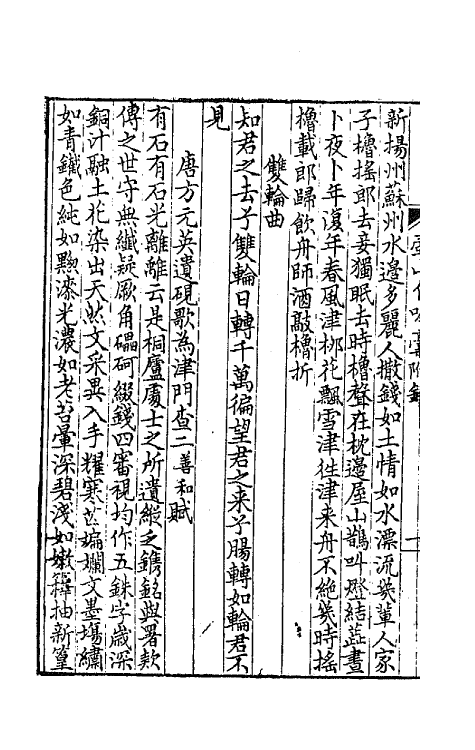 新揚州蘇州水邊多麗人撒錢如土情如水漂流幾輩人家
子櫓搖郎去妾獨眠去時櫓聲在枕邊屋山鵲叫燈結蕋晝
卜夜卜年復年春風津柳花飄雪津往津来舟不絶幾時搖
櫓載郎歸飲舟師酒敲櫓折
雙輪曲
知君之去予雙輪日轉千萬徧望君之来予腸轉如輪君不
見
唐方元英遺硯歌為津門查二善和賦
有石有石光離離云是桐廬處士之所遺縱之鐫銘與署款
傳之世守典纖疑厥角礧砢綴錢四審視均作五銖字歲深
銅汁融土花染出天然文采異入手耀寒芒斒斕文墨塲繡
如青鐵色純如黝漆光濃如老苔暈深碧淺如嫩籜抽新篁